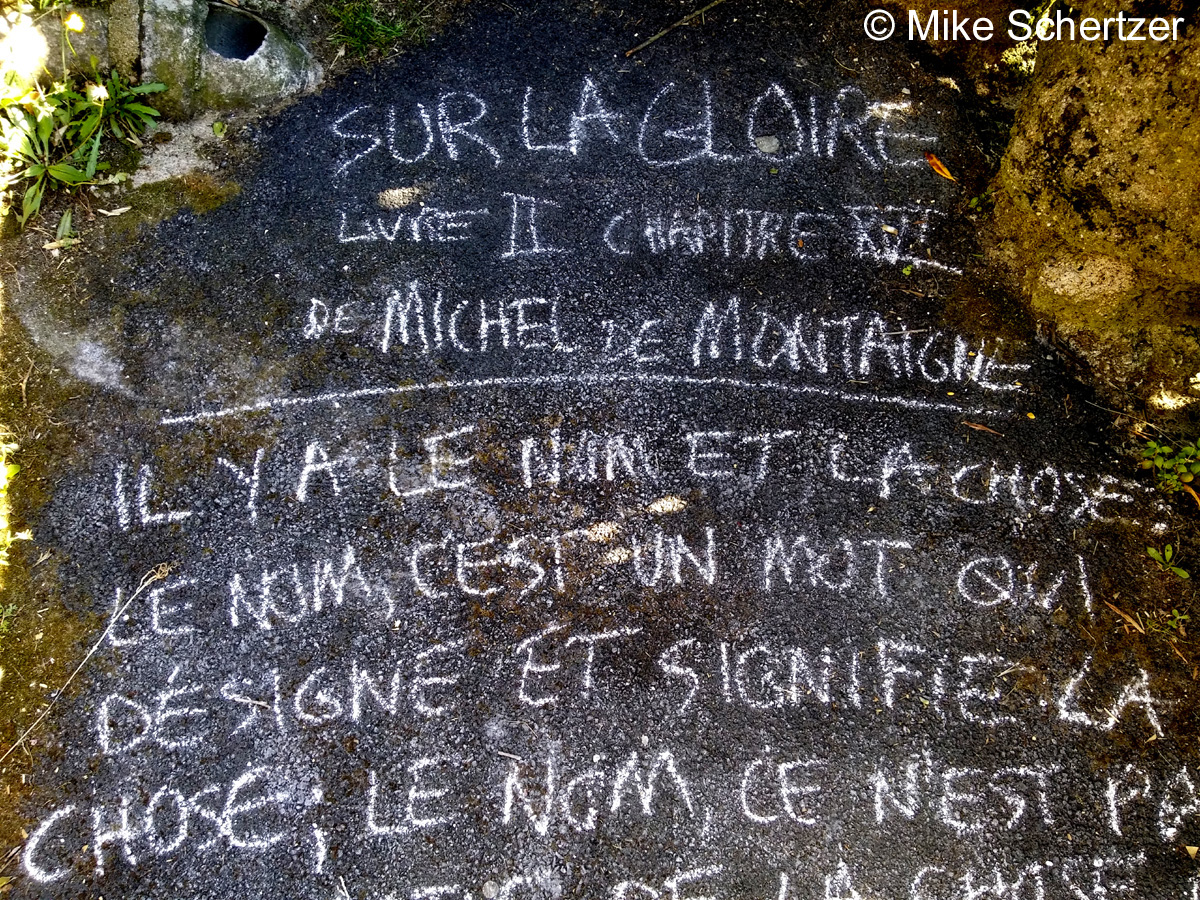 © Mike Schertzer
SUR LA GLOIRE
LIVRE II CHAPITRE XVI
DE MICHEL DE MONTAIGNE
IL Y A LE NOM ET LA CHOSE :
LE NOM, C'EST UN MOT QUI
DÉSIGNE ET SIGNIFIE LA
CHOSE ; LE NOM, CE N'EST PA
DE LA CHOSE